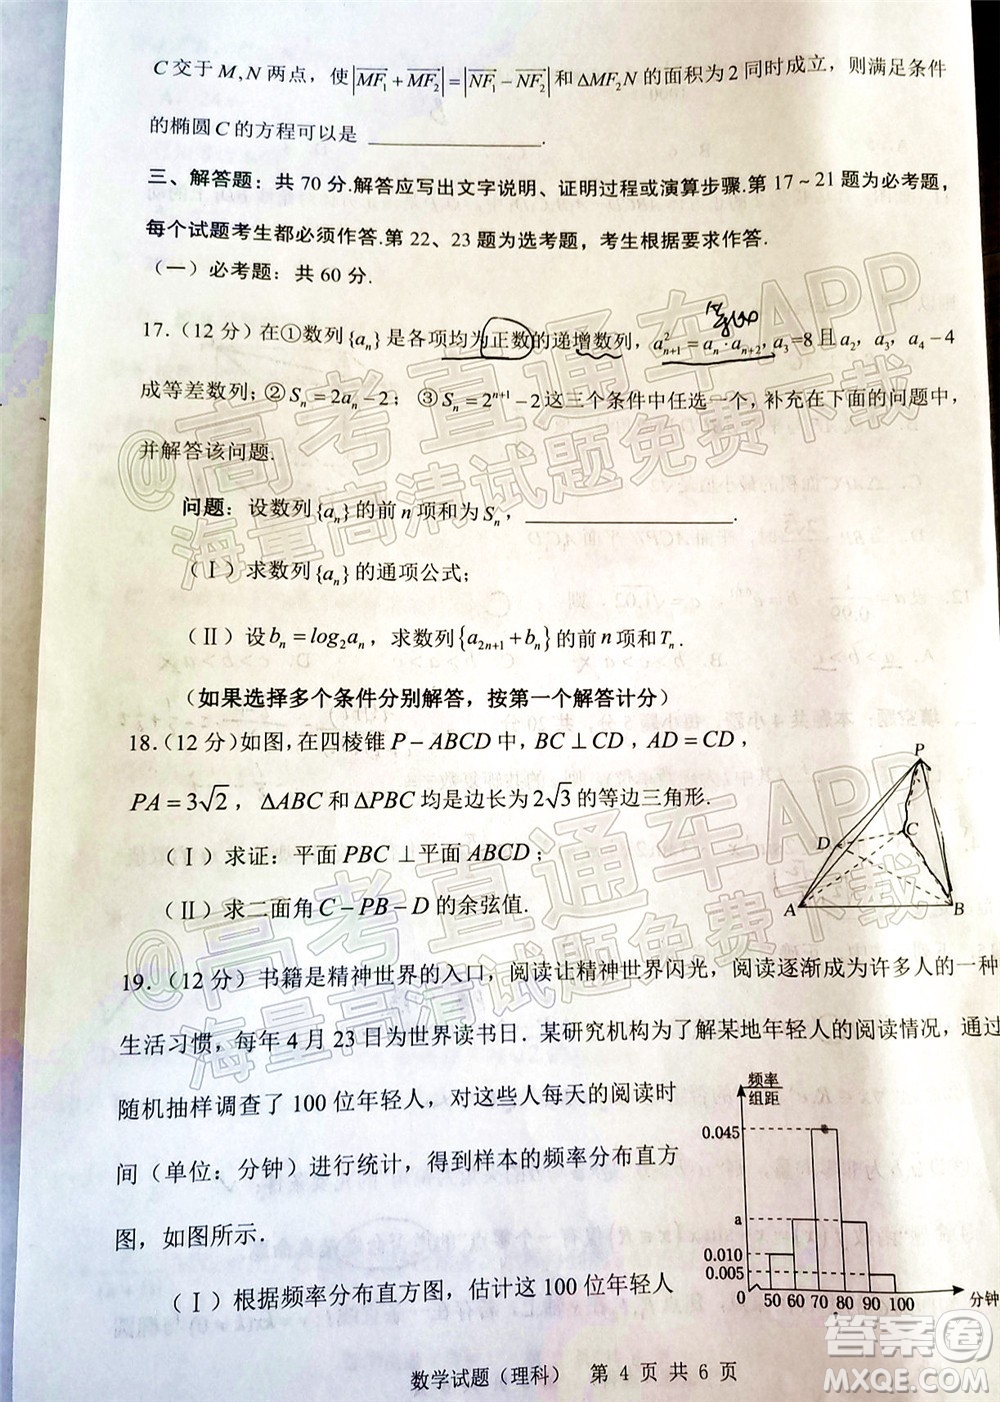 C交于M,N两点，使|MF₁+MF₂|=|NF₁−NF₂|和ΔMF₂N的面积为2同时成立，则满足条件
的椭圆C的方程可以是 ____________.
三、解答题：共70分.解答应写出文字说明、证明过程或演算步骤.第17～21题为必考题，
每个试题考生都必须作答.第22、23题为选考题，考生根据要求作答.
（一）必考题：共60分.
17.（12分）在①数列{aₙ}是各项均为正数的递增数列，a²ₙ₊₁=aₙ·aₙ₊₂,a₃=8且a₂，a₃，a₄−4
成等差数列；②Sₙ=2aₙ−2；③Sₙ=2ⁿ⁺¹−2这三个条件中任选一个，补充在下面的问题中，
并解答该问题.
问题：设数列{aₙ}的前n项和为Sₙ，____________.
（Ⅰ）求数列{aₙ}的通项公式；
（Ⅱ）设bₙ=log₂aₙ，求数列{a₂ₙ₊₁+bₙ}的前n项和Tₙ.
（如果选择多个条件分别解答，按第一个解答计分）
18.（12分）如图,在四棱锥P−ABCD中，BC⊥CD，AD=CD，
PA=3√2，ΔABC和ΔPBC均是边长为2√3的等边三角形.
（Ⅰ）求证：平面PBC⊥平面ABCD；
（Ⅱ）求二面角C−PB−D的余弦值.
P
D
C
A
B
19.（12分）书籍是精神世界的入口，阅读让精神世界闪光，阅读逐渐成为许多人的一种
生活习惯，每年4月23日为世界读书日.某研究机构为了解某地年轻人的阅读情况，通过
随机抽样调查了100位年轻人，对这些人每天的阅读时
间（单位：分钟）进行统计，得到样本的频率分布直方
图，如图所示.
（Ⅰ）根据频率分布直方图，估计这100位年轻人
频率
组距
0.045
a
0.010
0.005
0 50 60 70 80 90 100 分钟
数学试题（理科） 第4页共6页
@高考直通车APP
海量高清试题免费下载
@高考直通车APP
海量高清试题免费下载
答案圈
MXQE.COM